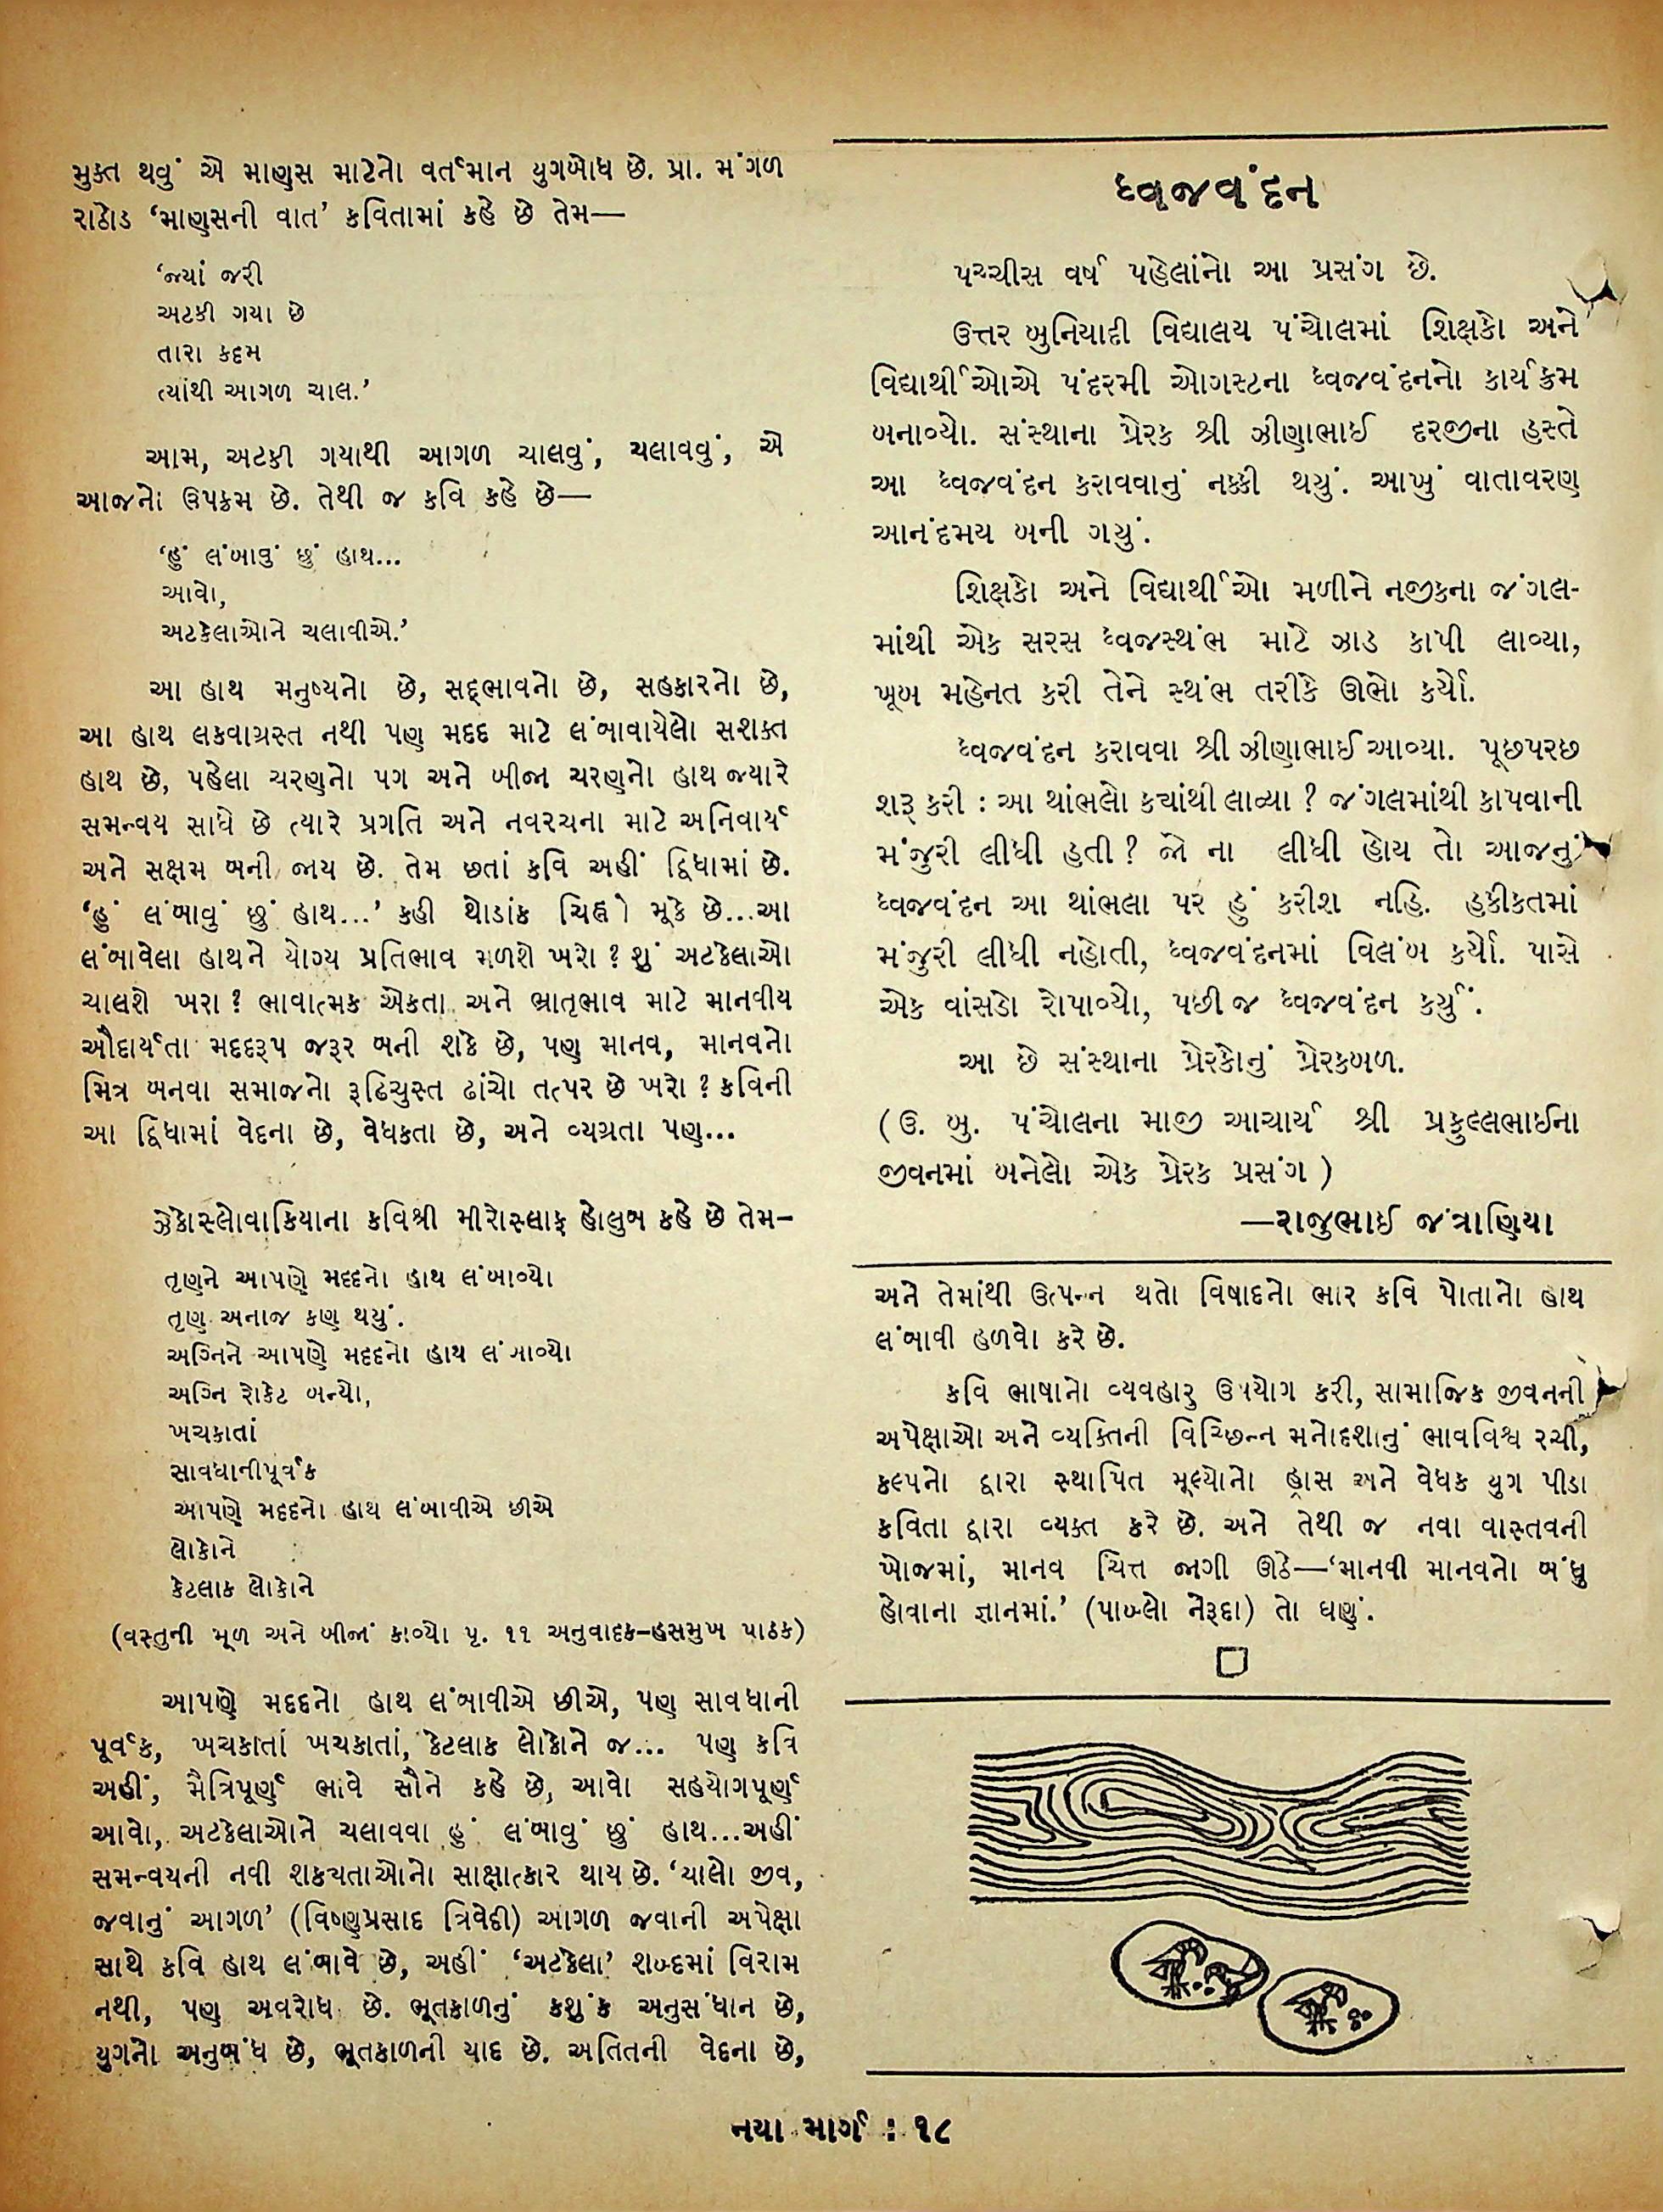 મુક્ત થવું એ માણસ માટેનો વર્તમાન યુગબોધ છે. પ્રા. મંગળ
રાઠોડ ‘માણસની વાત’ કવિતામાં કહે છે તેમ—
‘જ્યાં જરી
અટકી ગયા છે
તારા કદમ
ત્યાંથી આગળ ચાલ.’
આમ, અટકી ગયાથી આગળ ચાલવું, ચલાવવું, એ
આજનો ઉપક્રમ છે. તેથી જ કવિ કહે છે—
‘હું લંબાવું છું હાથ...
આવો,
અટકેલાઓને ચલાવીએ.’
આ હાથ મનુષ્યનો છે, સદ્ભાવનો છે, સહકારનો છે,
આ હાથ લકવાગ્રસ્ત નથી પણ મદદ માટે લંબાવાયેલો સશક્ત
હાથ છે, પહેલા ચરણનો પગ અને બીજા ચરણનો હાથ જ્યારે
સમન્વય સાધે છે ત્યારે પ્રગતિ અને નવરચના માટે અનિવાર્ય
અને સક્ષમ બની જાય છે. તેમ છતાં કવિ અહીં દ્વિધામાં છે.
‘હું લંબાવું છું હાથ...’ કહી થોડાંક ચિહ્નો મૂકે છે...આ
લંબાવેલા હાથને યોગ્ય પ્રતિભાવ મળશે ખરો ? શું અટકેલાઓ
ચાલશે ખરા ? ભાવાત્મક એકતા અને ભ્રાતૃભાવ માટે માનવીય
ઔદાર્યતા મદદરૂપ જરૂર બની શકે છે, પણ માનવ, માનવનો
મિત્ર બનવા સમાજનો રૂઢિચુસ્ત ઢાંચો તત્પર છે ખરો ? કવિની
આ દ્વિધામાં વેદના છે, વેધકતા છે, અને વ્યગ્રતા પણ...
ઝેકોસ્લોવાકિયાના કવિશ્રી મીરોસ્લાફ હોલુબ કહે છે તેમ–
તૃણને આપણે મદદનો હાથ લંબાવ્યો
તૃણ અનાજ કણ થયું.
અગ્નિને આપણે મદદનો હાથ લંબાવ્યો
અગ્નિ રોકેટ બન્યો,
ખચકાતાં
સાવધાનીપૂર્વક
આપણે મદદનો હાથ લંબાવીએ છીએ
લોકોને
કેટલાક લોકોને
(વસ્તુની મૂળ અને બીજાં કાવ્યો પૃ. ૧૧ અનુવાદક–હસમુખ પાઠક)
આપણે મદદનો હાથ લંબાવીએ છીએ, પણ સાવધાની
પૂર્વક, ખચકાતાં ખચકાતાં, કેટલાક લોકોને જ... પણ કવિ
અહીં, મૈત્રિપૂર્ણ ભાવે સૌને કહે છે, આવો સહયોગપૂર્ણ
આવો, અટકેલાઓને ચલાવવા હું લંબાવું છું હાથ...અહીં
સમન્વયની નવી શકયતાઓનો સાક્ષાત્કાર થાય છે. ‘ચાલો જીવ,
જવાનું આગળ’ (વિષ્ણુપ્રસાદ ત્રિવેદી) આગળ જવાની અપેક્ષા
સાથે કવિ હાથ લંબાવે છે, અહીં ‘અટકેલા’ શબ્દમાં વિરામ
નથી, પણ અવરોધ છે. ભૂતકાળનું કશુંક અનુસંધાન છે,
યુગનો અનુબંધ છે, ભૂતકાળની યાદ છે. અતિતની વેદના છે,
ધ્વજવંદન
પચ્ચીસ વર્ષ પહેલાંનો આ પ્રસંગ છે.
ઉત્તર બુનિયાદી વિદ્યાલય પંચોલમાં શિક્ષકો અને
વિદ્યાર્થીઓએ પંદરમી ઓગસ્ટના ધ્વજવંદનનો કાર્યક્રમ
બનાવ્યો. સંસ્થાના પ્રેરક શ્રી ઝીણાભાઈ દરજીના હસ્તે
આ ધ્વજવંદન કરાવવાનું નક્કી થયું. આખું વાતાવરણ
આનંદમય બની ગયું.
શિક્ષકો અને વિદ્યાર્થીઓ મળીને નજીકના જંગલ-
માંથી એક સરસ ધ્વજસ્થંભ માટે ઝાડ કાપી લાવ્યા,
ખૂબ મહેનત કરી તેને સ્થંભ તરીકે ઊભો કર્યો.
ધ્વજવંદન કરાવવા શ્રી ઝીણાભાઈ આવ્યા. પૂછપરછ
શરૂ કરી : આ થાંભલો કયાંથી લાવ્યા ? જંગલમાંથી કાપવાની
મંજુરી લીધી હતી ? જો ના લીધી હોય તો આજનું
ધ્વજવંદન આ થાંભલા પર હું કરીશ નહિ. હકીકતમાં
મંજુરી લીધી નહોતી, ધ્વજવંદનમાં વિલંબ કર્યો. પાસે
એક વાંસડો રોપાવ્યો, પછી જ ધ્વજવંદન કર્યું.
આ છે સંસ્થાના પ્રેરકોનું પ્રેરકબળ.
( ઉ. બુ. પંચોલના માજી આચાર્ય શ્રી પ્રફુલ્લભાઈના
જીવનમાં બનેલો એક પ્રેરક પ્રસંગ )
—રાજુભાઈ જંત્રાણિયા
અને તેમાંથી ઉત્પન્ન થતો વિષાદનો ભાર કવિ પોતાનો હાથ
લંબાવી હળવો કરે છે.
કવિ ભાષાનો વ્યવહારુ ઉપયોગ કરી, સામાજિક જીવનની
અપેક્ષાઓ અને વ્યક્તિની વિચ્છિન્ન મનોદશાનું ભાવવિશ્વ રચી,
કલ્પનો દ્વારા સ્થાપિત મૂલ્યોનો હ્રાસ અને વેધક યુગ પીડા
કવિતા દ્વારા વ્યક્ત કરે છે. અને તેથી જ નવા વાસ્તવની
ખોજમાં, માનવ ચિત્ત જાગી ઊઠે—‘માનવી માનવનો બંધુ
હોવાના જ્ઞાનમાં.’ (પાબ્લો નેરૂદા) તો ઘણું.
નયા માર્ગ : ૧૮